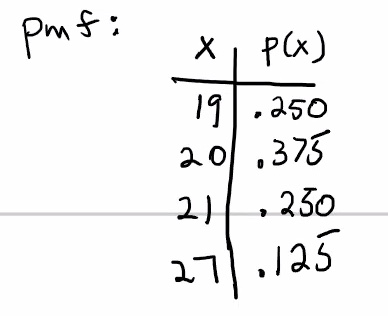 pmf:
x p(x)
19 .250
20 .375
21 .250
27 .125